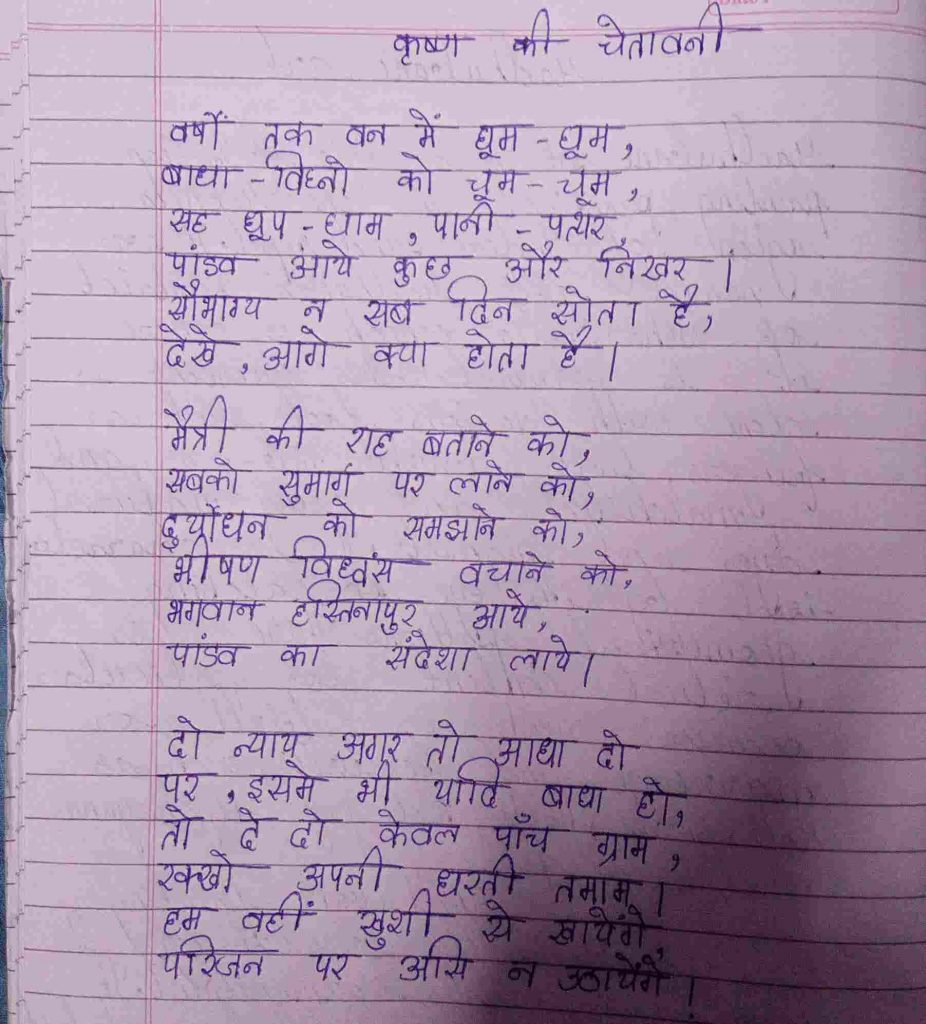 कृष्ण की चेतावनी
वर्षों तक वन में घूम-घूम,
बाधा-विघ्नो को चूम-चूम,
सह धूप-घाम, पानी-पत्थर,
पांडव आये कुछ और निखर।
सौभाग्य न सब दिन सोता है,
देखे, आगे क्या होता है।
मैत्री की राह बताने को,
सबको सुमार्ग पर लाने को,
दुर्योधन को समझाने को,
भीषण विध्वंस वचाने को,
भगवान हस्तिनापुर आये,
पांडव का संदेशा लाये।
दो न्याय अगर तो आधा दो
पर, इसमे भी यदि बाधा हो,
तो दे दो केवल पाँच ग्राम,
रक्खो अपनी धरती तमाम।
हम वहीं खुशी से खायेंगे,
परिजन पर असि न उठायेंगे।